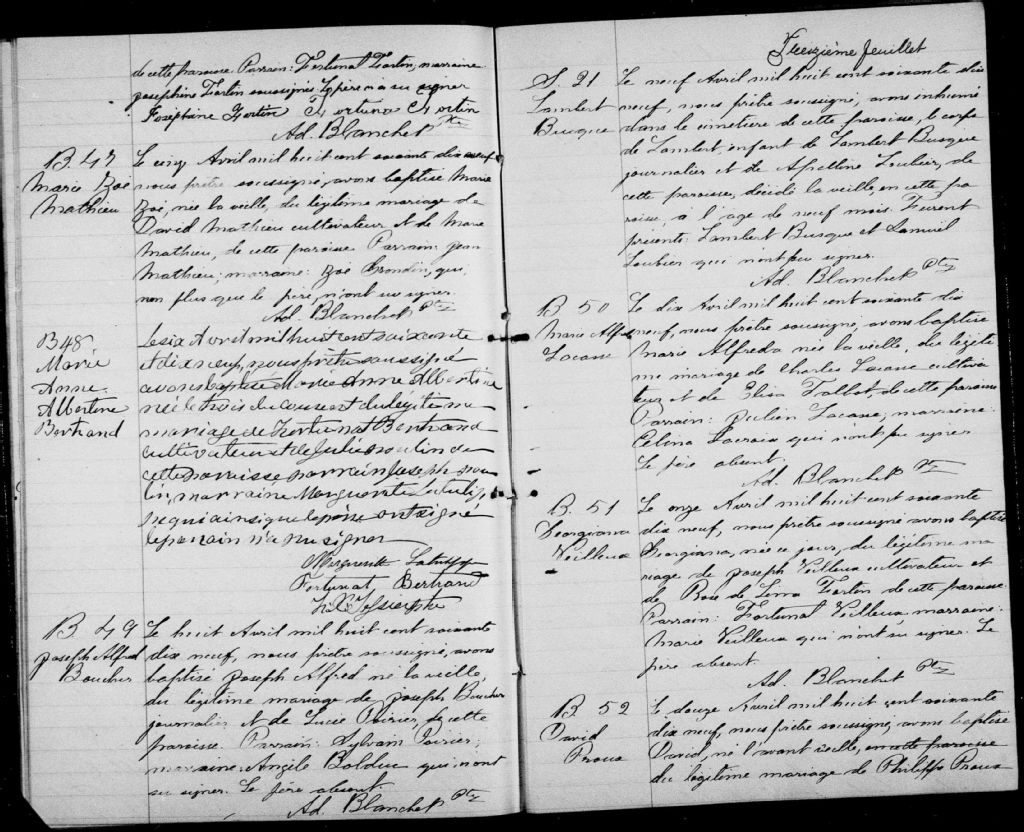 de cette paroisse. Parrain: Fortunat Fortin, marraine
Josephine Fortin soussignés. Le père n'a su signer
Josephine Fortin Fortuna Fortin
Ad. Blanchet Ptre
B. 47
Marie Zoé
Mathieu
Le cinq Avril mil huit cent soixante dix neuf
nous prêtre soussigné, avons baptisé Marie
Zoé, née la veille, du légitime mariage de
David Mathieu cultivateur et de Marie
Mathieu, de cette paroisse. Parrain: Jean
Mathieu; marraine: Zoé Grondin, qui,
non plus que le père, n'ont su signer.
Ad. Blanchet Ptre
B 48
Marie
Anne
Albertine
Bertrand
Le six Avril mil huit cent soixante
et dix neuf, nous prêtre soussigné
avons baptisé Marie Anne Albertine
née le trois du courant du légitime
mariage de Fortunat Bertrand
cultivateur et de Julie Poulin de
cette paroisse parrain Joseph Pou
lin, marraine Marguerite Latulip
pe qui ainsi que le père ont signé
le parrain n'a pu signer
Marguerite Latulippe
Fortunat Bertrand
B. 49
Joseph Alfred
Boucher
Le huit Avril mil huit cent soixante
dix neuf, nous prêtre soussigné, avons
baptisé Joseph Alfred né la veille,
du légitime mariage de Joseph Boucher
journalier et de Lucie Poirier, de cette
paroisse. Parrain: Sylvain Poirier;
marraine: Angèle Bolduc qui n'ont
su signer. Le père absent.
Ad. Blanchet Ptre
Treizième feuillet
S. 21
Lambert
Busque
Le neuf Avril mil huit cent soixante dix
neuf, nous prêtre soussigné, avons inhumé
dans le cimetière de cette paroisse, le corps
de Lambert, enfant de Lambert Busque
journalier et de Apolline Loubier, de
cette paroisse, décédé la veille, en cette pa
roisse, à l'age de neuf mois. Furent
présents: Lambert Busque et Samuel
Loubier qui n'ont pu signer.
Ad. Blanchet Ptre
B. 50
Marie Alfreda
Lacasse
Le dix Avril mil huit cent soixante dix
neuf, nous prêtre soussigné, avons baptisé
Marie Alfreda née la veille, du légiti
me mariage de Charles Lacasse cultiva
teur et de Elisa Talbot, de cette paroisse
Parrain: Julien Lacasse, marraine:
Celina Lacroix qui n'ont pu signer
Le père absent.
Ad. Blanchet Ptre
B. 51
Georgiana
Veilleux
Le onze Avril mil huit cent soixante
dix neuf, nous prêtre soussigné avons baptisé
Georgiana, née ce jour, du légitime ma
riage de Joseph Veilleux cultivateur et
de Rose de Lima Fortin de cette paroisse
Parrain: Fortunat Veilleux, marraine:
Marie Veilleux qui n'ont su signer. Le
père absent
Ad. Blanchet Ptre
B. 52
David
Proux
Le douze Avril mil huit cent soixante
dix neuf, nous prêtre soussigné, avons baptisé
David, né l'avant veille, en cette paroisse
du légitime mariage de Philippe Proux